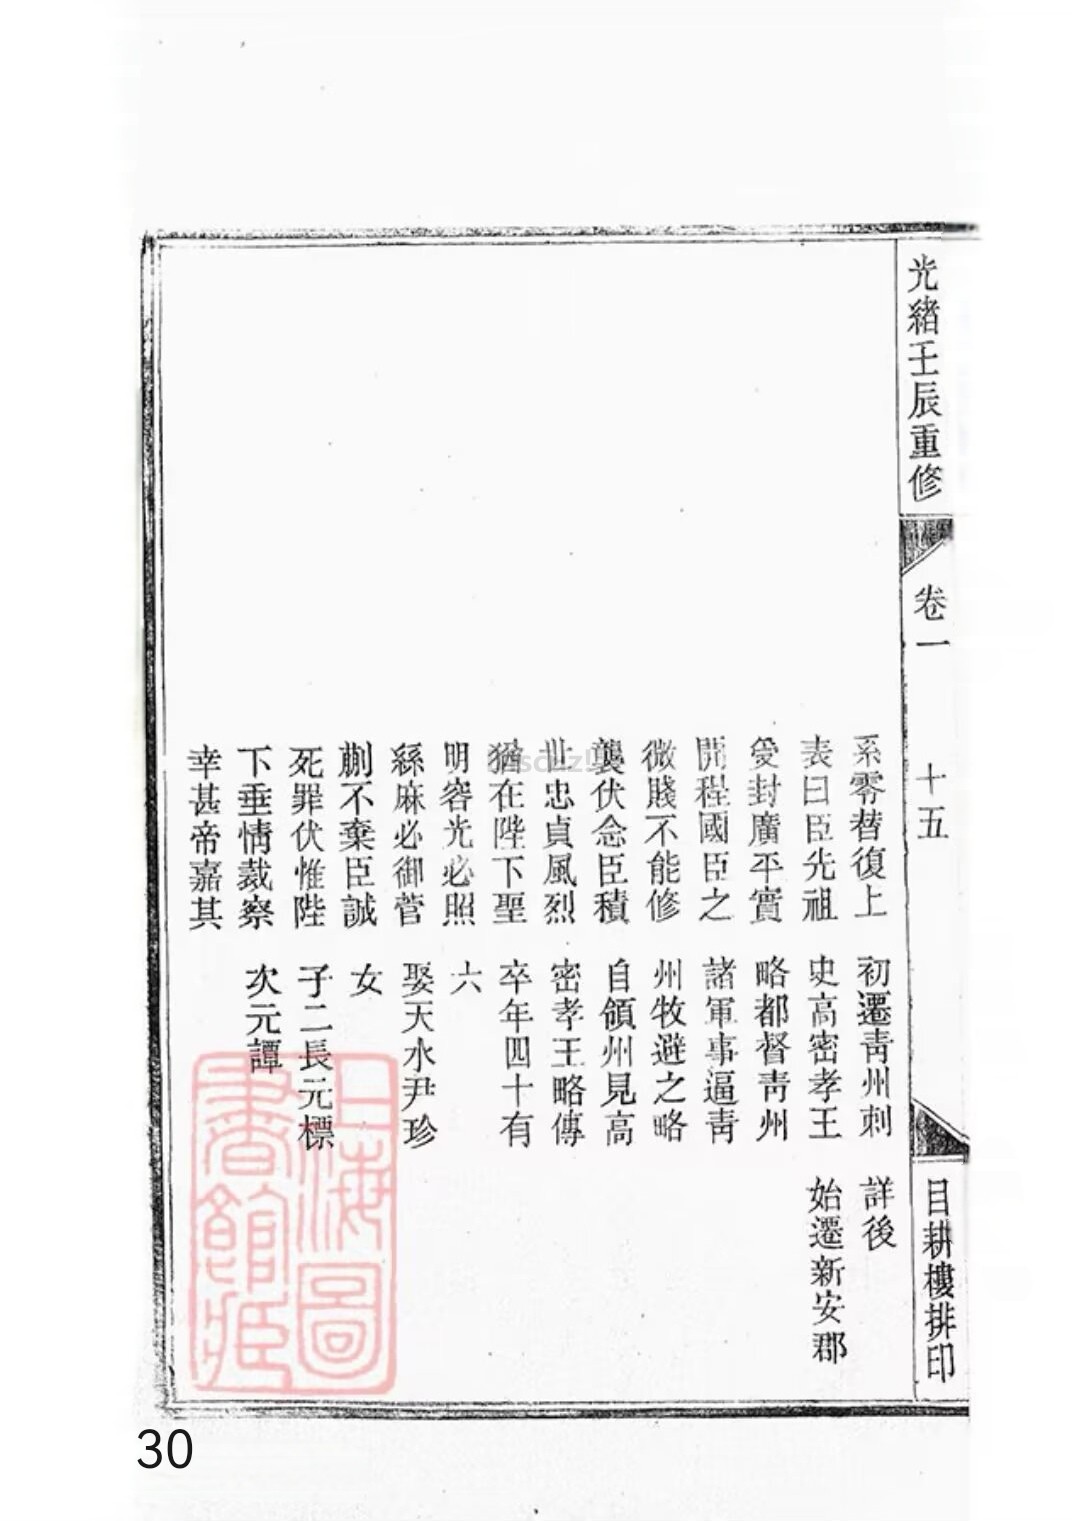 光緒壬辰重修
卷一
十五
目耕樓排印
系零替復上
表曰臣先祖
受封廣平實
開程國臣之
微賤不能修
襲伏念臣積
世忠貞風烈
猶在陛下聖
明容光必照
絲麻必御菅
蒯不棄臣誠
死罪伏惟陛
下垂情裁察
幸甚帝嘉其
初遷青州刺
史高密孝王
略都督青州
諸軍事逼青
州牧避之略
自領州見高
密孝王略傳
卒年四十有
六
娶天水尹珍
女
子二長元標
次元譚
詳後
始遷新安郡
上海圖
書館藏
30